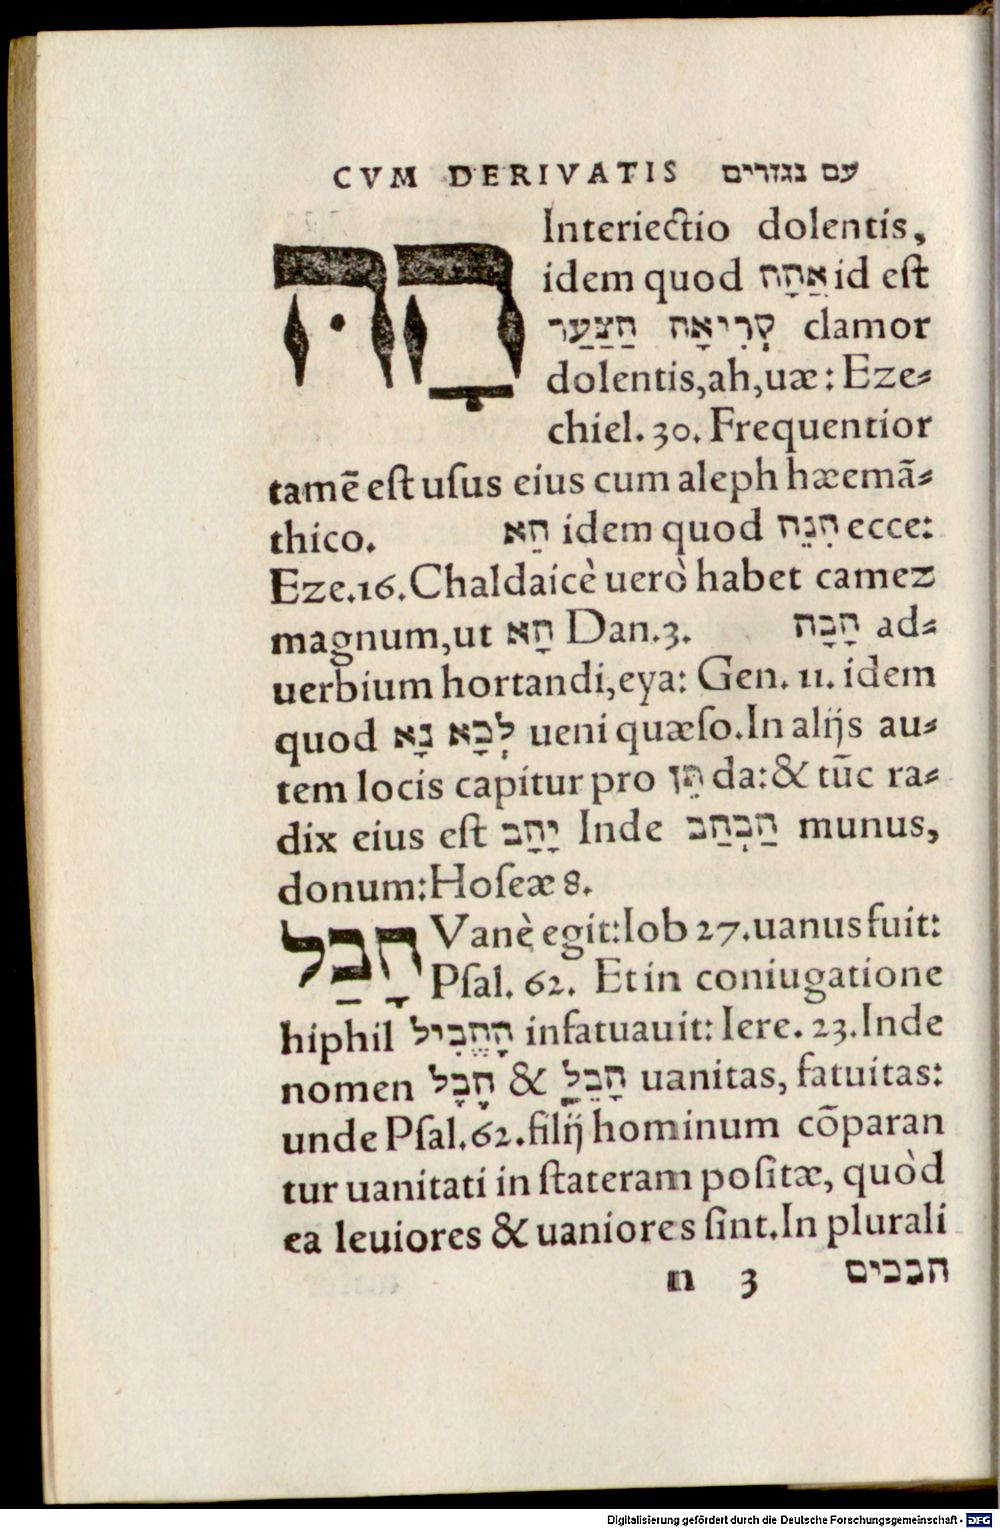 CVM DERIVATIS עם נגזרים
הָהּ Interiectio dolentis,
idem quod אֲהָהּ id eſt
קְרִיאָה הַצַעַר clamor
dolentis,ah,uæ: Eze⸗
chiel. 30. Frequentior
tamē eſt uſus eius cum aleph hæemā⸗
thico. הֵא idem quod הִנֵה ecce:
Eze.16. Chaldaicè uerò habet camez
magnum,ut הָא Dan.3. הָבָה ad⸗
uerbium hortandi,eya: Gen. 11. idem
quod לְבָא נָא ueni quæſo.In alijs au⸗
tem locis capitur pro הֵן da:& tūc ra⸗
dix eius eſt יָהָב Inde הַבְהַב munus,
donum:Hoſeæ 8.
הָבַל Vanè egit:Iob 27.uanus fuit:
Pſal. 62. Et in coniugatione
hiphil הָהֱבִיל infatuauit: Iere. 23.Inde
nomen הָבָל & הָבֵל uanitas, fatuitas:
unde Pſal.62.filij hominum cōparan
tur uanitati in ſtateram poſitæ, quòd
ea leuiores & uaniores ſint.In plurali
n 3 הבבים
Digitalisierung gefördert durch die Deutsche Forschungsgemeinschaft - DFG